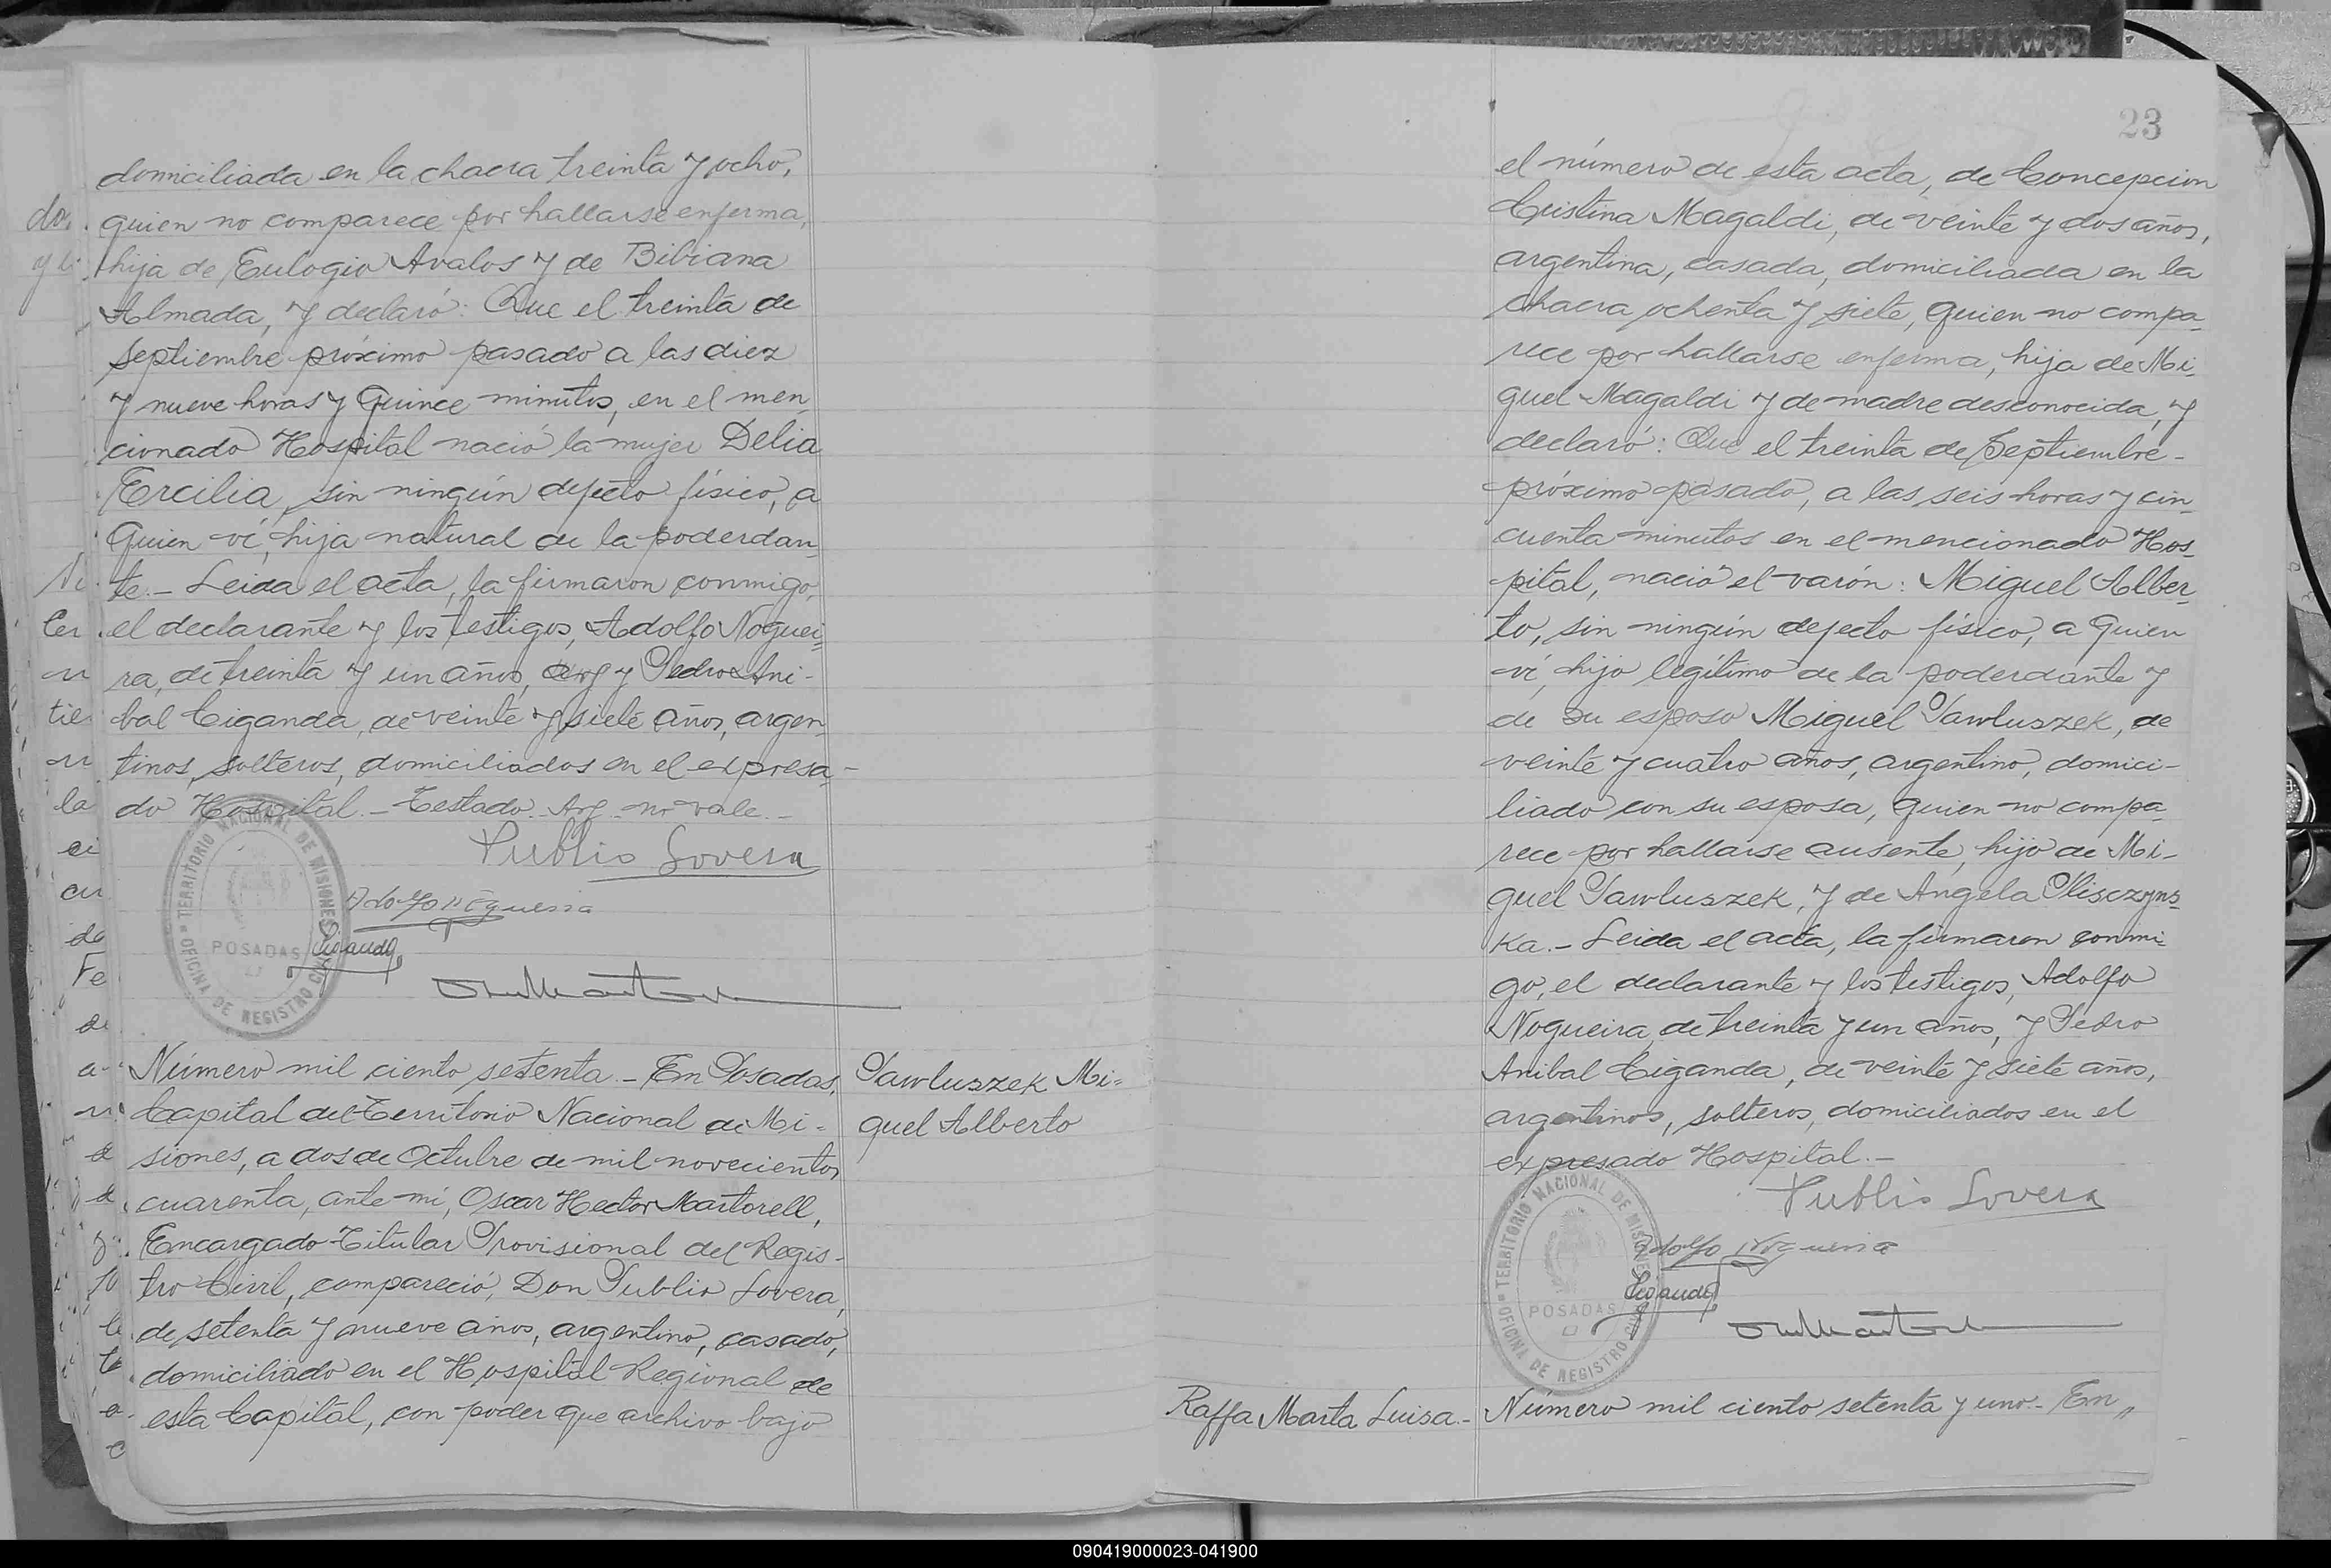 domiciliada en la chacra treinta y ocho,
quien no comparece por hallarse enferma,
hija de Eulogio Avalos y de Bibiana
Almada, y declaró: Que el treinta de
septiembre próximo pasado a las diez
y nueve horas y quince minutos, en el men
cionado Hospital nació la mujer Delia
Ercilia, sin ningún defecto físico, a
quien ví, hija natural de la poderdan
te.- Leida el acta, la firmaron conmigo,
el declarante y los testigos, Adolfo Noguei
ra, de treinta y un años, arg y Pedro Ani-
bal Ciganda, de veinte y siete años, argen
tinos, solteros, domiciliados en el expresa-
do Hospital.- Testado. Arg. no vale.-
Publio Lovera
Adolfo Nogueira
Ciganda
TERRITORIO NACIONAL DE MISIONES
POSADAS
OFICINA DE REGISTRO CIVIL
Número mil ciento setenta.- En Posadas,
Capital del Territorio Nacional de Mi-
siones, a dos de Octubre de mil novecientos
cuarenta, ante mí, Oscar Hector Martorell,
Encargado Titular Provisional del Regis-
tro Civil, compareció, Don Publio Lovera,
de setenta y nueve años, argentino, casado,
domiciliado en el Hospital Regional de
esta Capital, con poder que archivo bajo
Pawluszek Mi=
guel Alberto
23
el número de esta acta, de Concepcion
Cristina Magaldi, de veinte y dos años,
argentina, casada, domiciliada en la
chacra ochenta y siete, quien no compa-
rece por hallarse enferma, hija de Mi-
guel Magaldi y de madre desconocida, y
declaró: Que el treinta de Septiembre-
próximo pasado, a las seis horas y cin
cuenta minutos en el mencionado Hos-
pital, nació el varón: Miguel Alber-
to, sin ningún defecto físico, a quien
ví, hijo legítimo de la poderdante y
de su esposo Miguel Pawluszek, de
veinte y cuatro años, argentino, domici-
liado con su esposa, quien no compa-
rece por hallarse ausente, hijo de Mi-
guel Pawluszek, y de Angela Plisczyns-
ka.- Leida el acta, la firmaron conmi-
go, el declarante y los testigos, Adolfo
Nogueira, de treinta y un años, y Pedro
Anibal Ciganda, de veinte y siete años,
argentinos, solteros, domiciliados en el
expresado Hospital.-
Publio Lovera
Adolfo Nogueira
Ciganda
TERRITORIO NACIONAL DE MISIONES
POSADAS
OFICINA DE REGISTRO CIVIL
Raffa Marta Luisa.-
Número mil ciento setenta y uno.- En
090419000023-041900